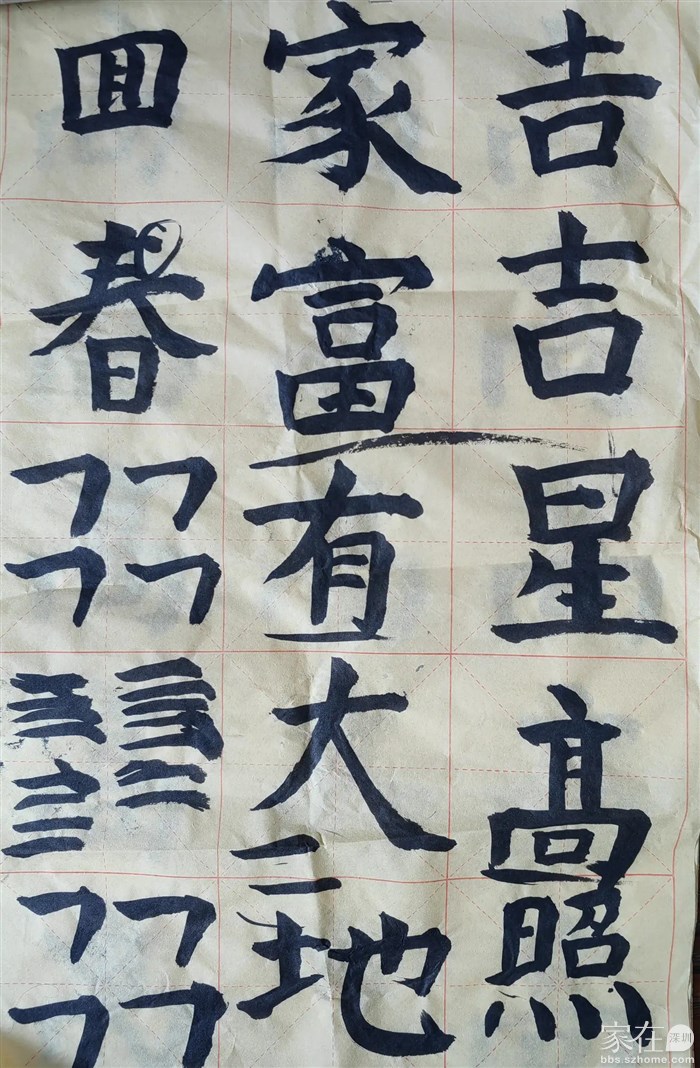 𠮷吉星髙照
家富有大地
囬春
家在深圳
bbs.szhome.com